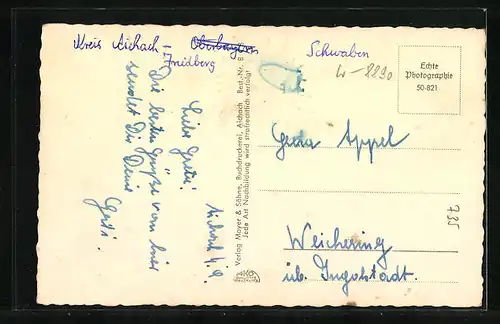 Kreis Aichach
Friedberg
Oberbayern
Schwaben
W-8890
Echte
Photographie
50-821
Aichach 4.9.
Liebe Greta!
Die besten Grüße von hier
sendet Dir Deine
Gerti.
Verlag Mayer & Söhne, Buchdruckerei, Aichach Best.-Nr. 8
Jede Art Nachbildung wird strafrechtlich verfolgt
Appel
Weichering
üb. Ingolstadt.
735